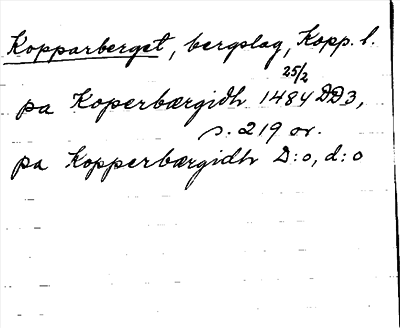 Kopparberget, bergslag, Kopp. l.
25/2
pa Koperbærgidh 1484 DD3,
s. 219 or.
pa Kopperbærgidh D:o, d:o